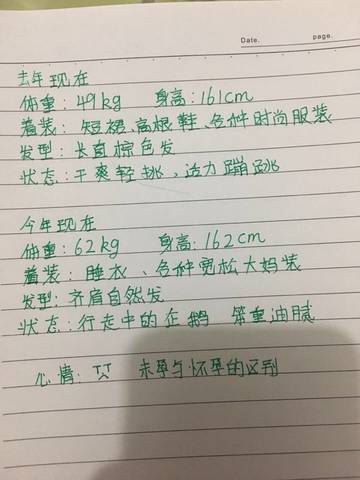 Date.    page.
去年现在
体重：49kg    身高：161cm
着装：短裙、高根鞋、各种时尚服装
发型：长直棕色发
状态：干爽轻挑、活力蹦跳
今年现在
体重：62kg    身高：162cm
着装：睡衣、各种宽松大妈装
发型：齐肩自然发
状态：行走中的企鹅    笨重油腻
心情：T^T    未孕与怀孕的区别